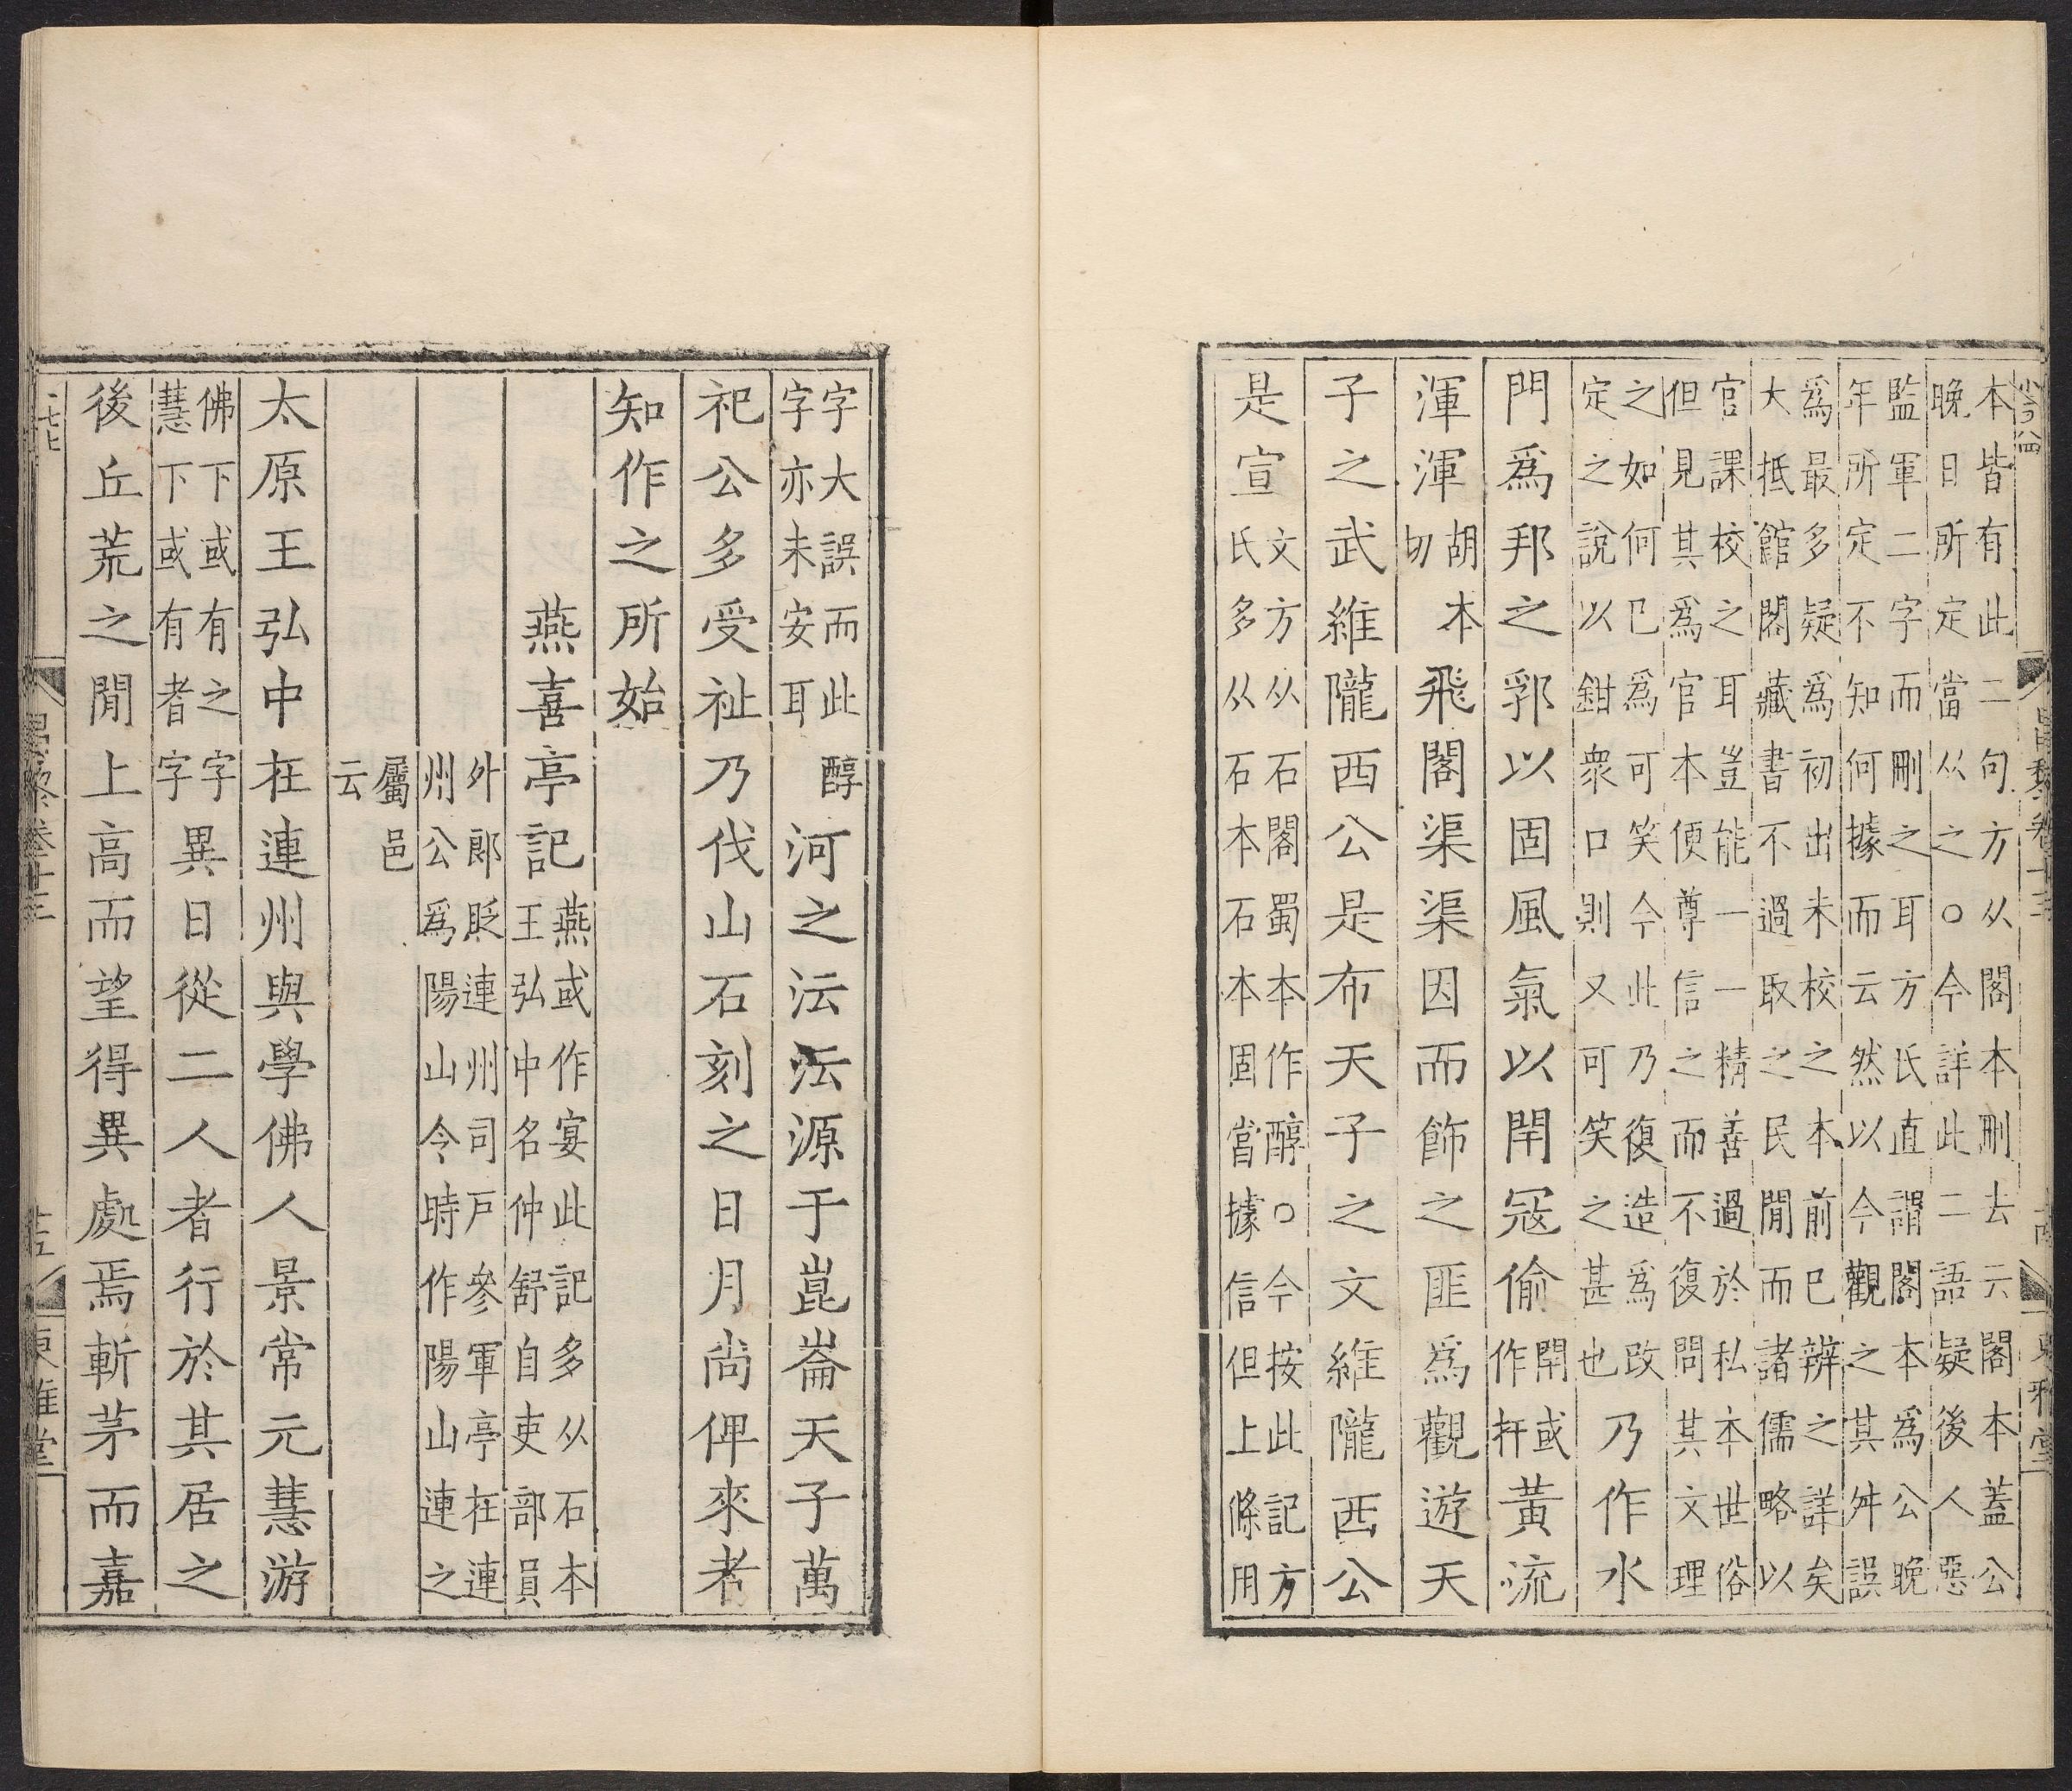 本皆有此二句方从閣本刪去云閣本蓋公
晚日所定當从之○今詳此二語疑後人惡
監軍二字而刪之耳方氏直謂閣本爲公晚
年所定不知何據而云然以今觀之其舛誤
爲最多疑爲初出未校之本前已辨之詳矣
大抵館閣藏書不過取之民閒而諸儒略以
官課校之耳豈能一一精善過於私本世俗
但見其爲官本便尊信之而不復問其文理
之如何已爲可笑今此乃復造爲改
定之說以鉗衆口則又可笑之甚也
乃作水
門爲邦之郛以固風氣以閈冦偷閈或作扞黃流
渾渾胡本切飛閣渠渠因而飾之匪爲觀遊天
子之武維隴西公是布天子之文維隴西公
是宣
文方从石閣蜀本作醇○今按此記方
氏多从石本石本固當據信但上條用
昌黎卷十三
東雅堂
字大誤而此醇
字亦未安耳
河之沄沄源于崑崙天子萬
祀公多受祉乃伐山石刻之日月尚俾來者
知作之所始
燕喜亭記
燕或作宴此記多从石本
王弘中名仲舒自吏部員
外郎貶連州司戶參軍亭在連
州公爲陽山令時作陽山連之
屬邑
云
太原王弘中在連州與學佛人景常元慧游
佛下或有之字
慧下或有者字
異日從二人者行於其居之
後丘荒之閒上高而望得異處焉斬茅而嘉
昌黎卷十三
十五
東雅堂